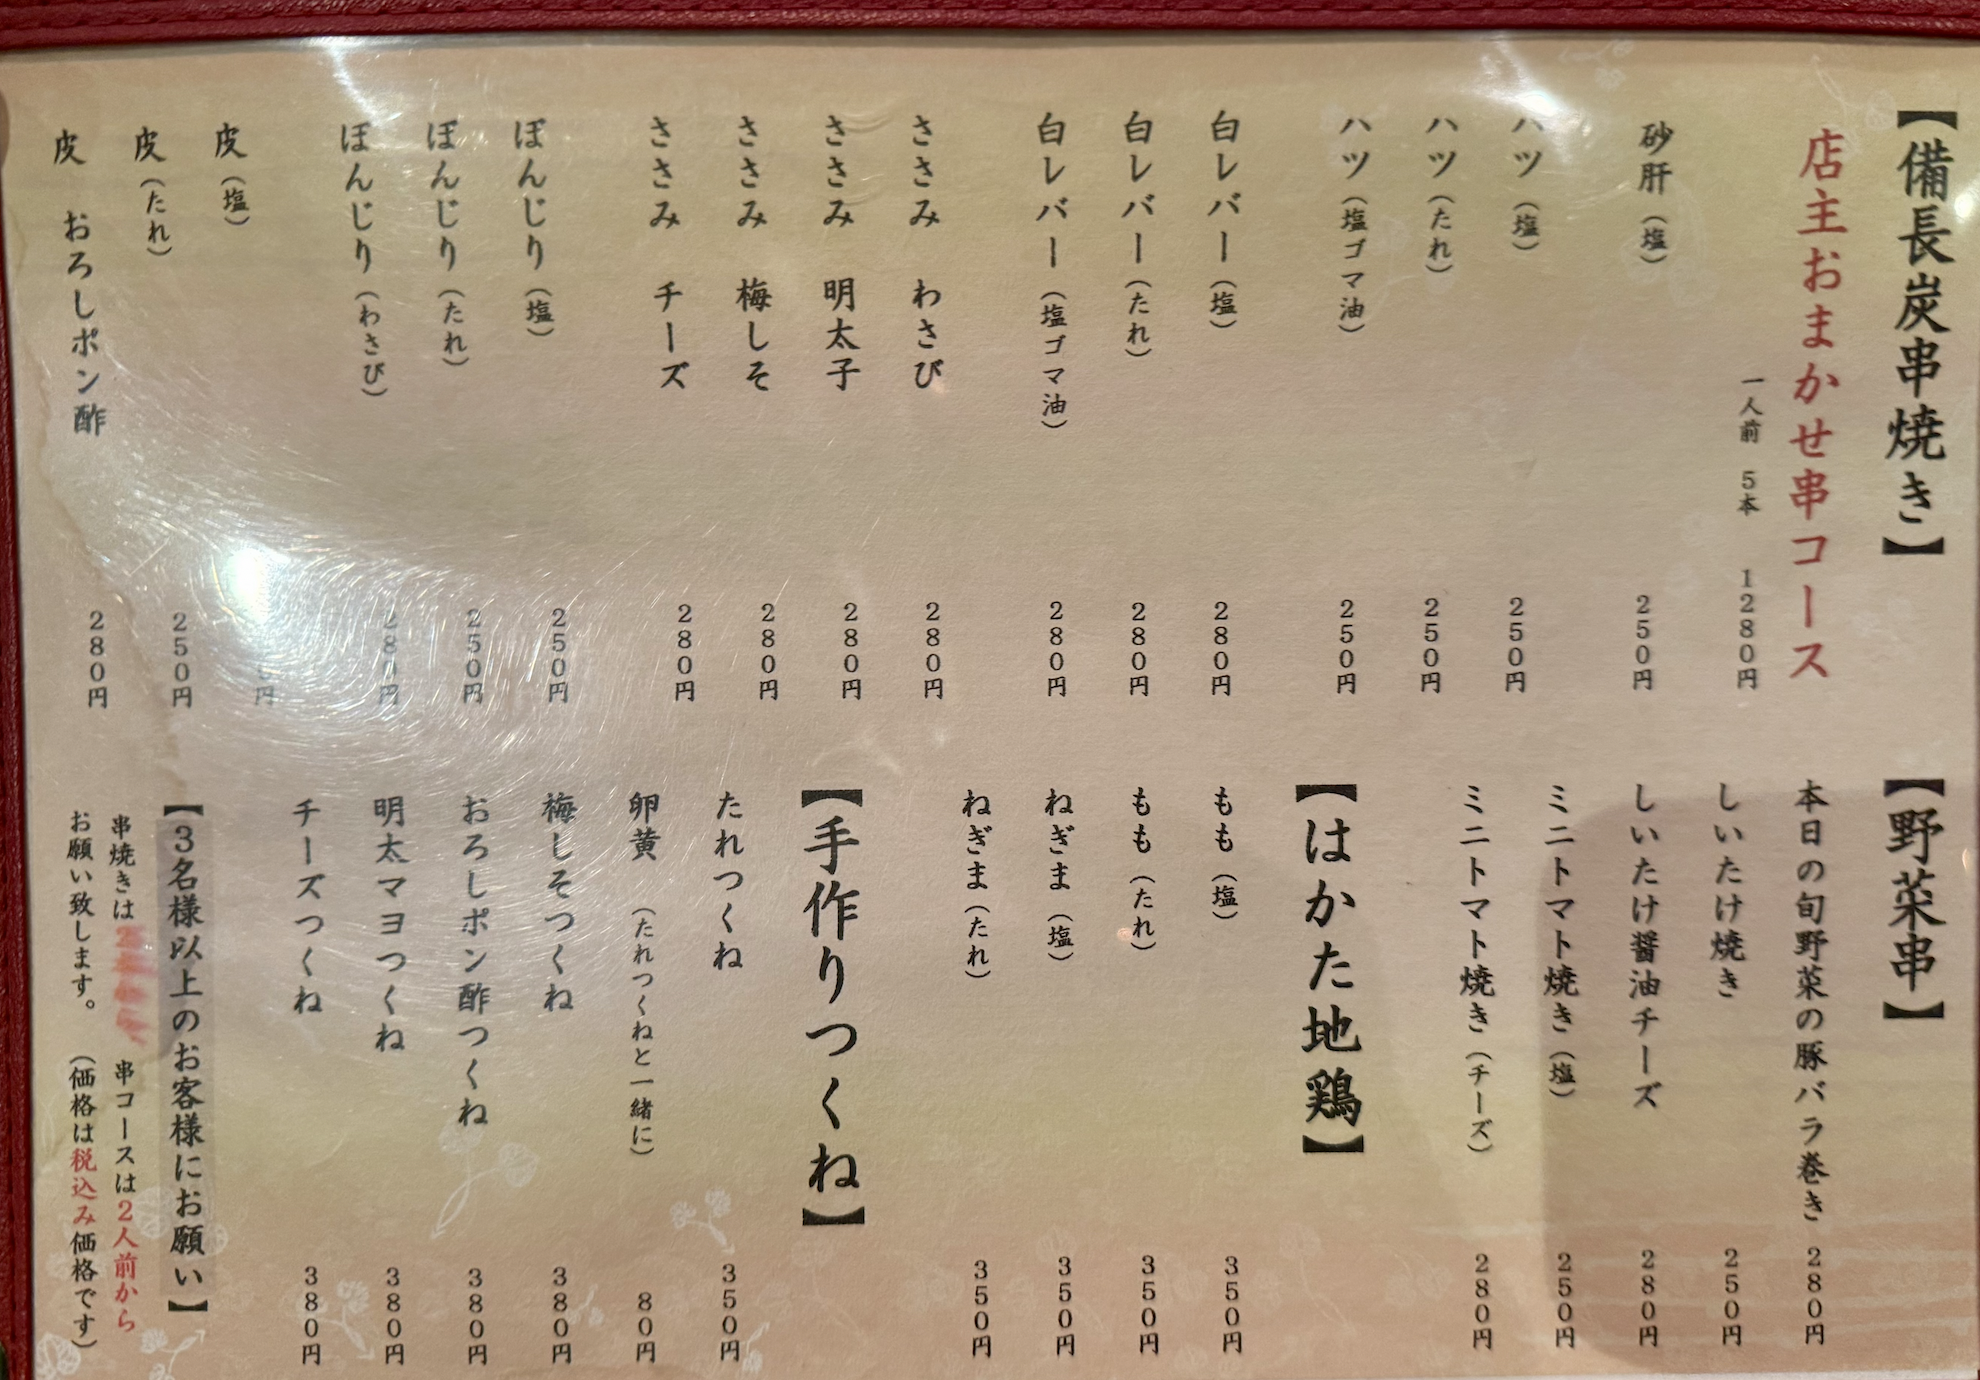 【備長炭串焼き】
店主おまかせ串コース
一人前 5本 1280円
砂肝（塩） 250円
ハツ（塩） 250円
ハツ（たれ） 250円
ハツ（塩ゴマ油） 250円
白レバー（塩） 280円
白レバー（たれ） 280円
白レバー（塩ゴマ油） 280円
ささみ わさび 280円
ささみ 明太子 280円
ささみ 梅しそ 280円
ささみ チーズ 280円
ぼんじり（塩） 250円
ぼんじり（たれ） 250円
ぼんじり（わさび） 280円
皮（塩） 円
皮（たれ） 250円
皮 おろしポン酢 280円
【野菜串】
本日の旬野菜の豚バラ巻き 280円
しいたけ焼き 250円
しいたけ醤油チーズ 280円
ミニトマト焼き（塩） 250円
ミニトマト焼き（チーズ） 280円
【はかた地鶏】
もも（塩） 350円
もも（たれ） 350円
ねぎま（塩） 350円
ねぎま（たれ） 350円
【手作りつくね】
たれつくね 350円
卵黄 （たれつくねと一緒に） 80円
梅しそつくね 380円
おろしポン酢つくね 380円
明太マヨつくね 380円
チーズつくね 380円
【3名様以上のお客様にお願い】
串焼きは 串コースは2人前から
お願い致します。 （価格は税込み価格です）